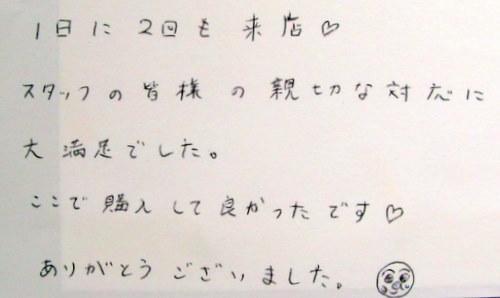 1日に2回も来店♡
スタッフの皆様の親切な対応に
大満足でした。
ここで購入して良かったです♡
ありがとうございました。